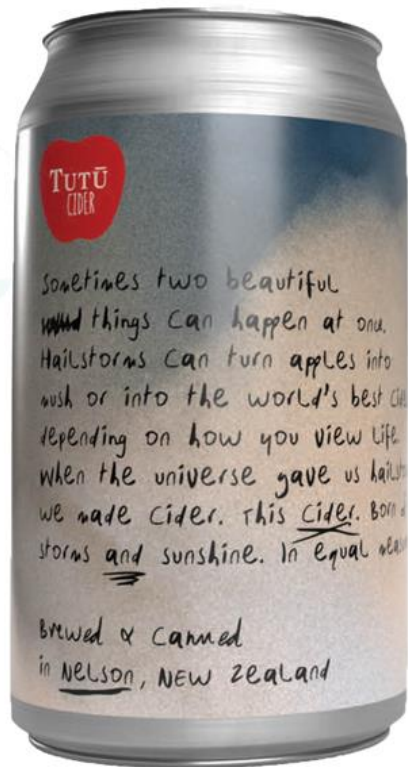 TUTŪ
CIDER
Sometimes two beautiful
things can happen at once.
Hailstorms can turn apples into
mush or into the world's best
depending on how you view life.
When the universe gave us
we made cider. This Cider. Born
storms and sunshine. In equal
Brewed & Canned
in Nelson, New Zealand